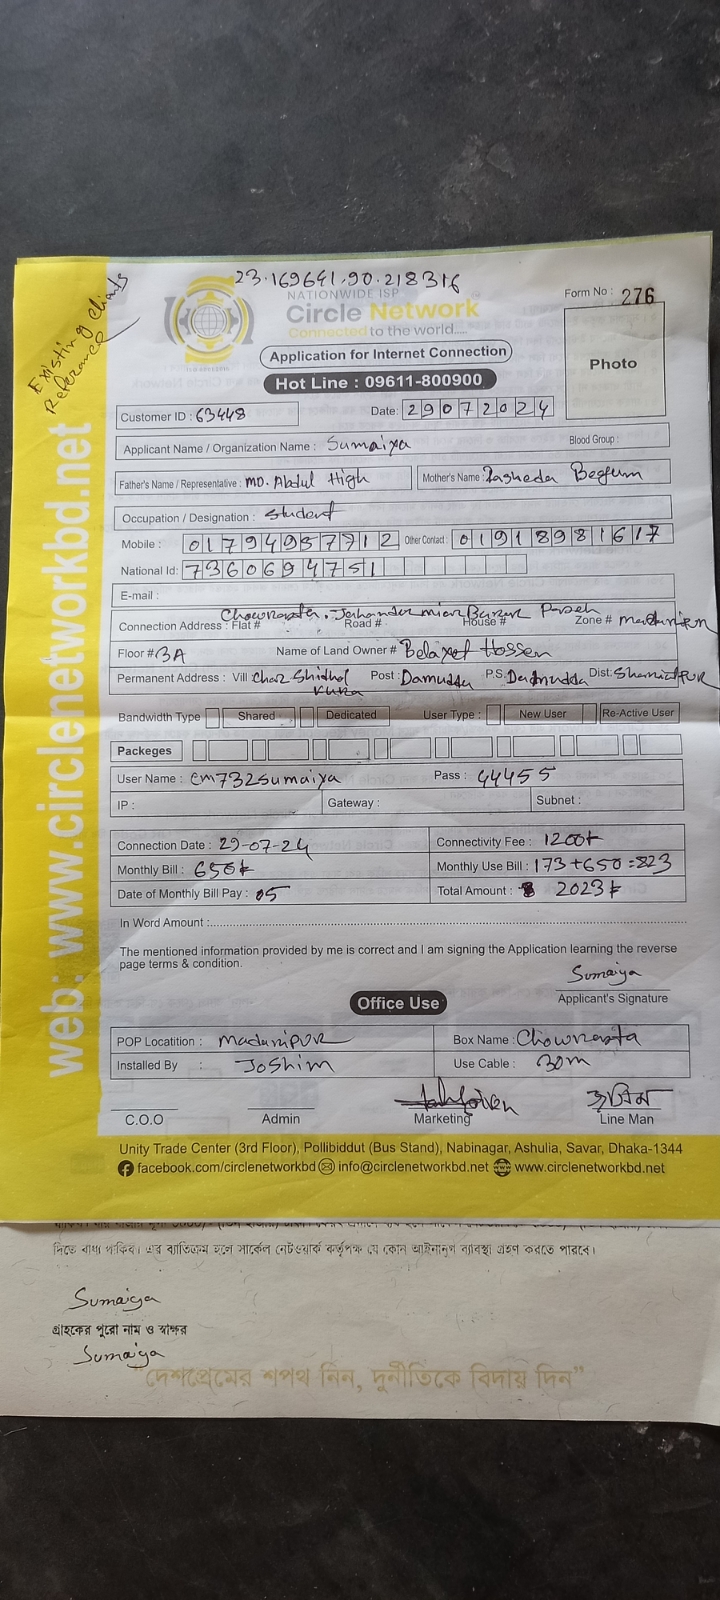 23.169641,90.218316
Existing Clients
Referance
NATIONWIDE ISP
Circle Network
Connected to the world....
Form No : 276
Application for Internet Connection
Photo
Hot Line : 09611-800900
Customer ID : 63448
Date: 29072024
Applicant Name / Organization Name : Sumaiya
Blood Group :
Father's Name / Representative : MD. Abdul High
Mother's Name : Rasheda Begum
Occupation / Designation : Student
Mobile : 01794957712 Other Contact : 01918981617
National Id: 7360694751
E-mail :
Chowrasta, Jahandar mia Bazar
Connection Address : Flat # Road # House # Zone # Madaripur
Floor # 3A Name of Land Owner # Belayet Hossen
Permanent Address : Vill Char Shidhol Post : Damudda P.S. Damudda Dist: Shariatpur
kura
Bandwidth Type Shared Dedicated User Type : New User Re-Active User
Packeges
User Name : cm732sumaiya Pass : 44455
IP : Gateway : Subnet :
Connection Date : 29-07-24 Connectivity Fee : 1200৳
Monthly Bill : 650৳ Monthly Use Bill : 173+650=823
Date of Monthly Bill Pay : 05 Total Amount : 2023৳
In Word Amount :
The mentioned information provided by me is correct and I am signing the Application learning the reverse
page terms & condition.
Sumaiya
Applicant's Signature
Office Use
POP Locatition : Madaripur Box Name : Chowrasta
Installed By : Joshim Use Cable : 30m
জসিম
C.O.O Admin Marketing Line Man
Unity Trade Center (3rd Floor), Pollibiddut (Bus Stand), Nabinagar, Ashulia, Savar, Dhaka-1344
facebook.com/circlenetworkbd info@circlenetworkbd.net www.circlenetworkbd.net
web: www.circlenetworkbd.net
দিতে বাধ্য থাকিব। এর ব্যতিক্রম হলে সার্কেল নেটওয়ার্ক কর্তৃপক্ষ যে কোন আইনানুগ ব্যাবস্থা গ্রহণ করতে পারবে।
Sumaiya
গ্রাহকের পুরো নাম ও স্বাক্ষর
Sumaiya
"দেশপ্রেমের শপথ নিন, দুর্নীতিকে বিদায় দিন"